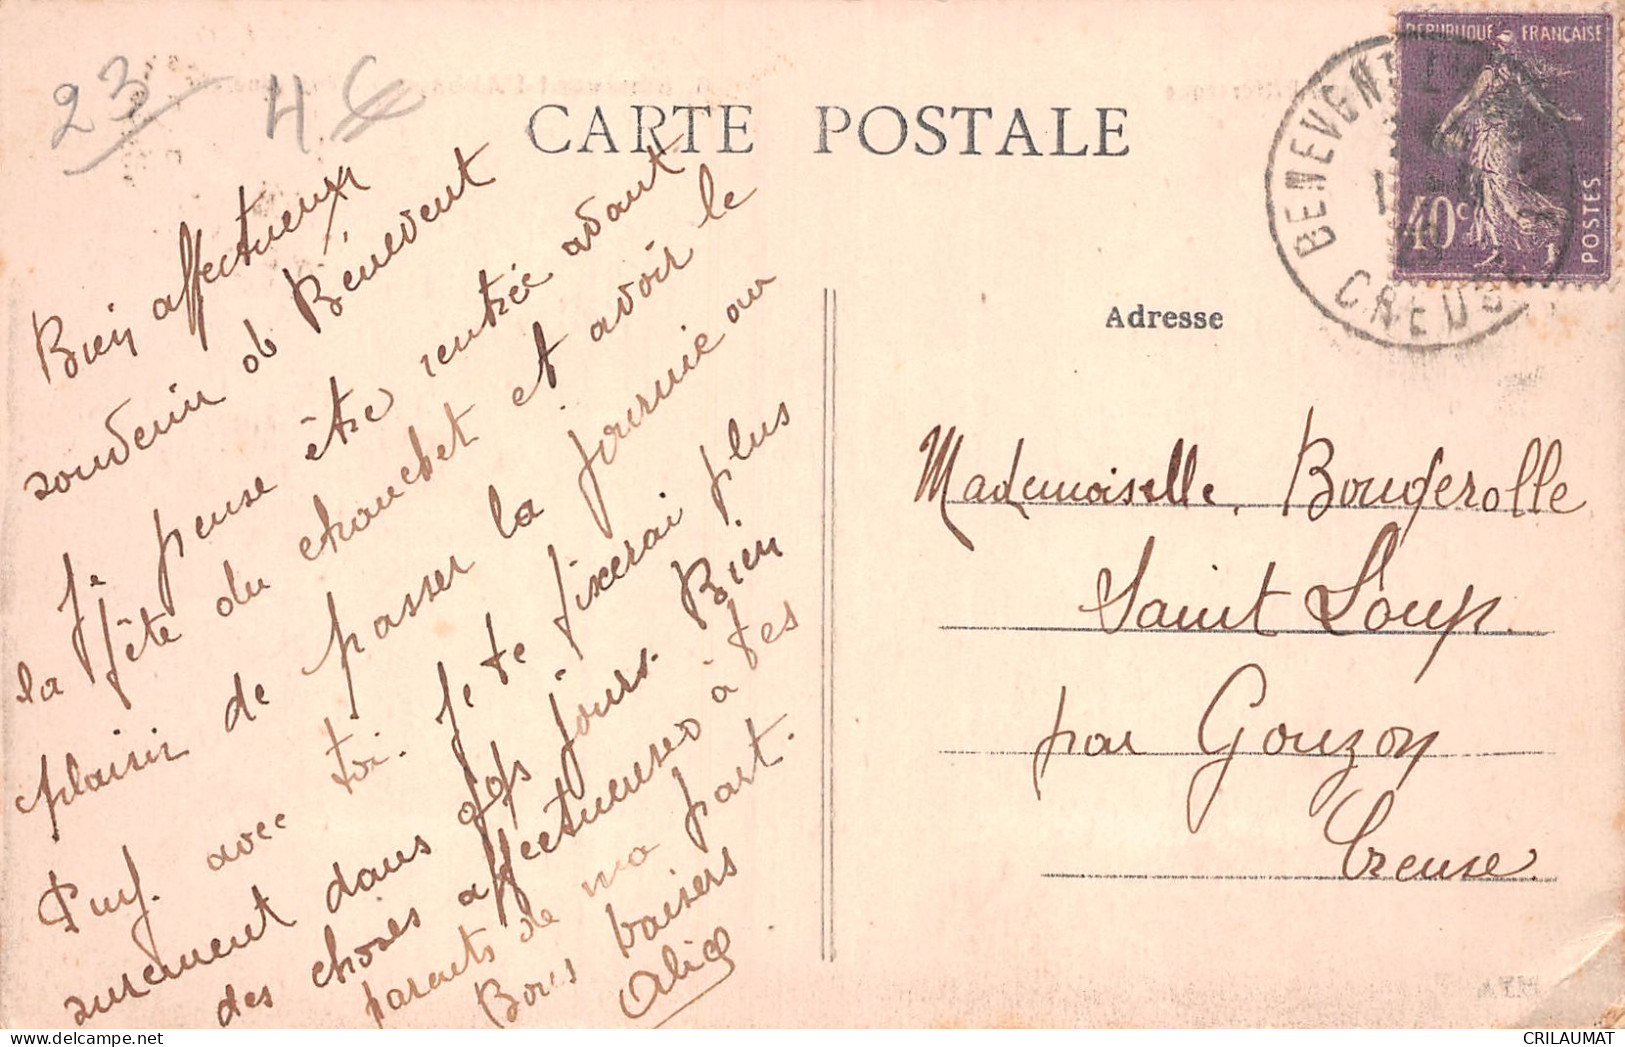 23
CARTE POSTALE
REPUBLIQUE FRANÇAISE
40c
POSTES
BENEVENT
CREUSE
Adresse
Bien affectueux
souvenir de Bénévent
Je pense être rentrée avant
la fête du chanchet et avoir le
plaisir de passer la journie ou
avec toi. Je te fixerai plus
surement dans qqs jours. Bien
des choses affectueuses à tes
parents de ma part.
Bons baisers
Alice
Mademoiselle Bougerolle
Saint Loup
par Gouzon
Creuse
CRILAUMAT